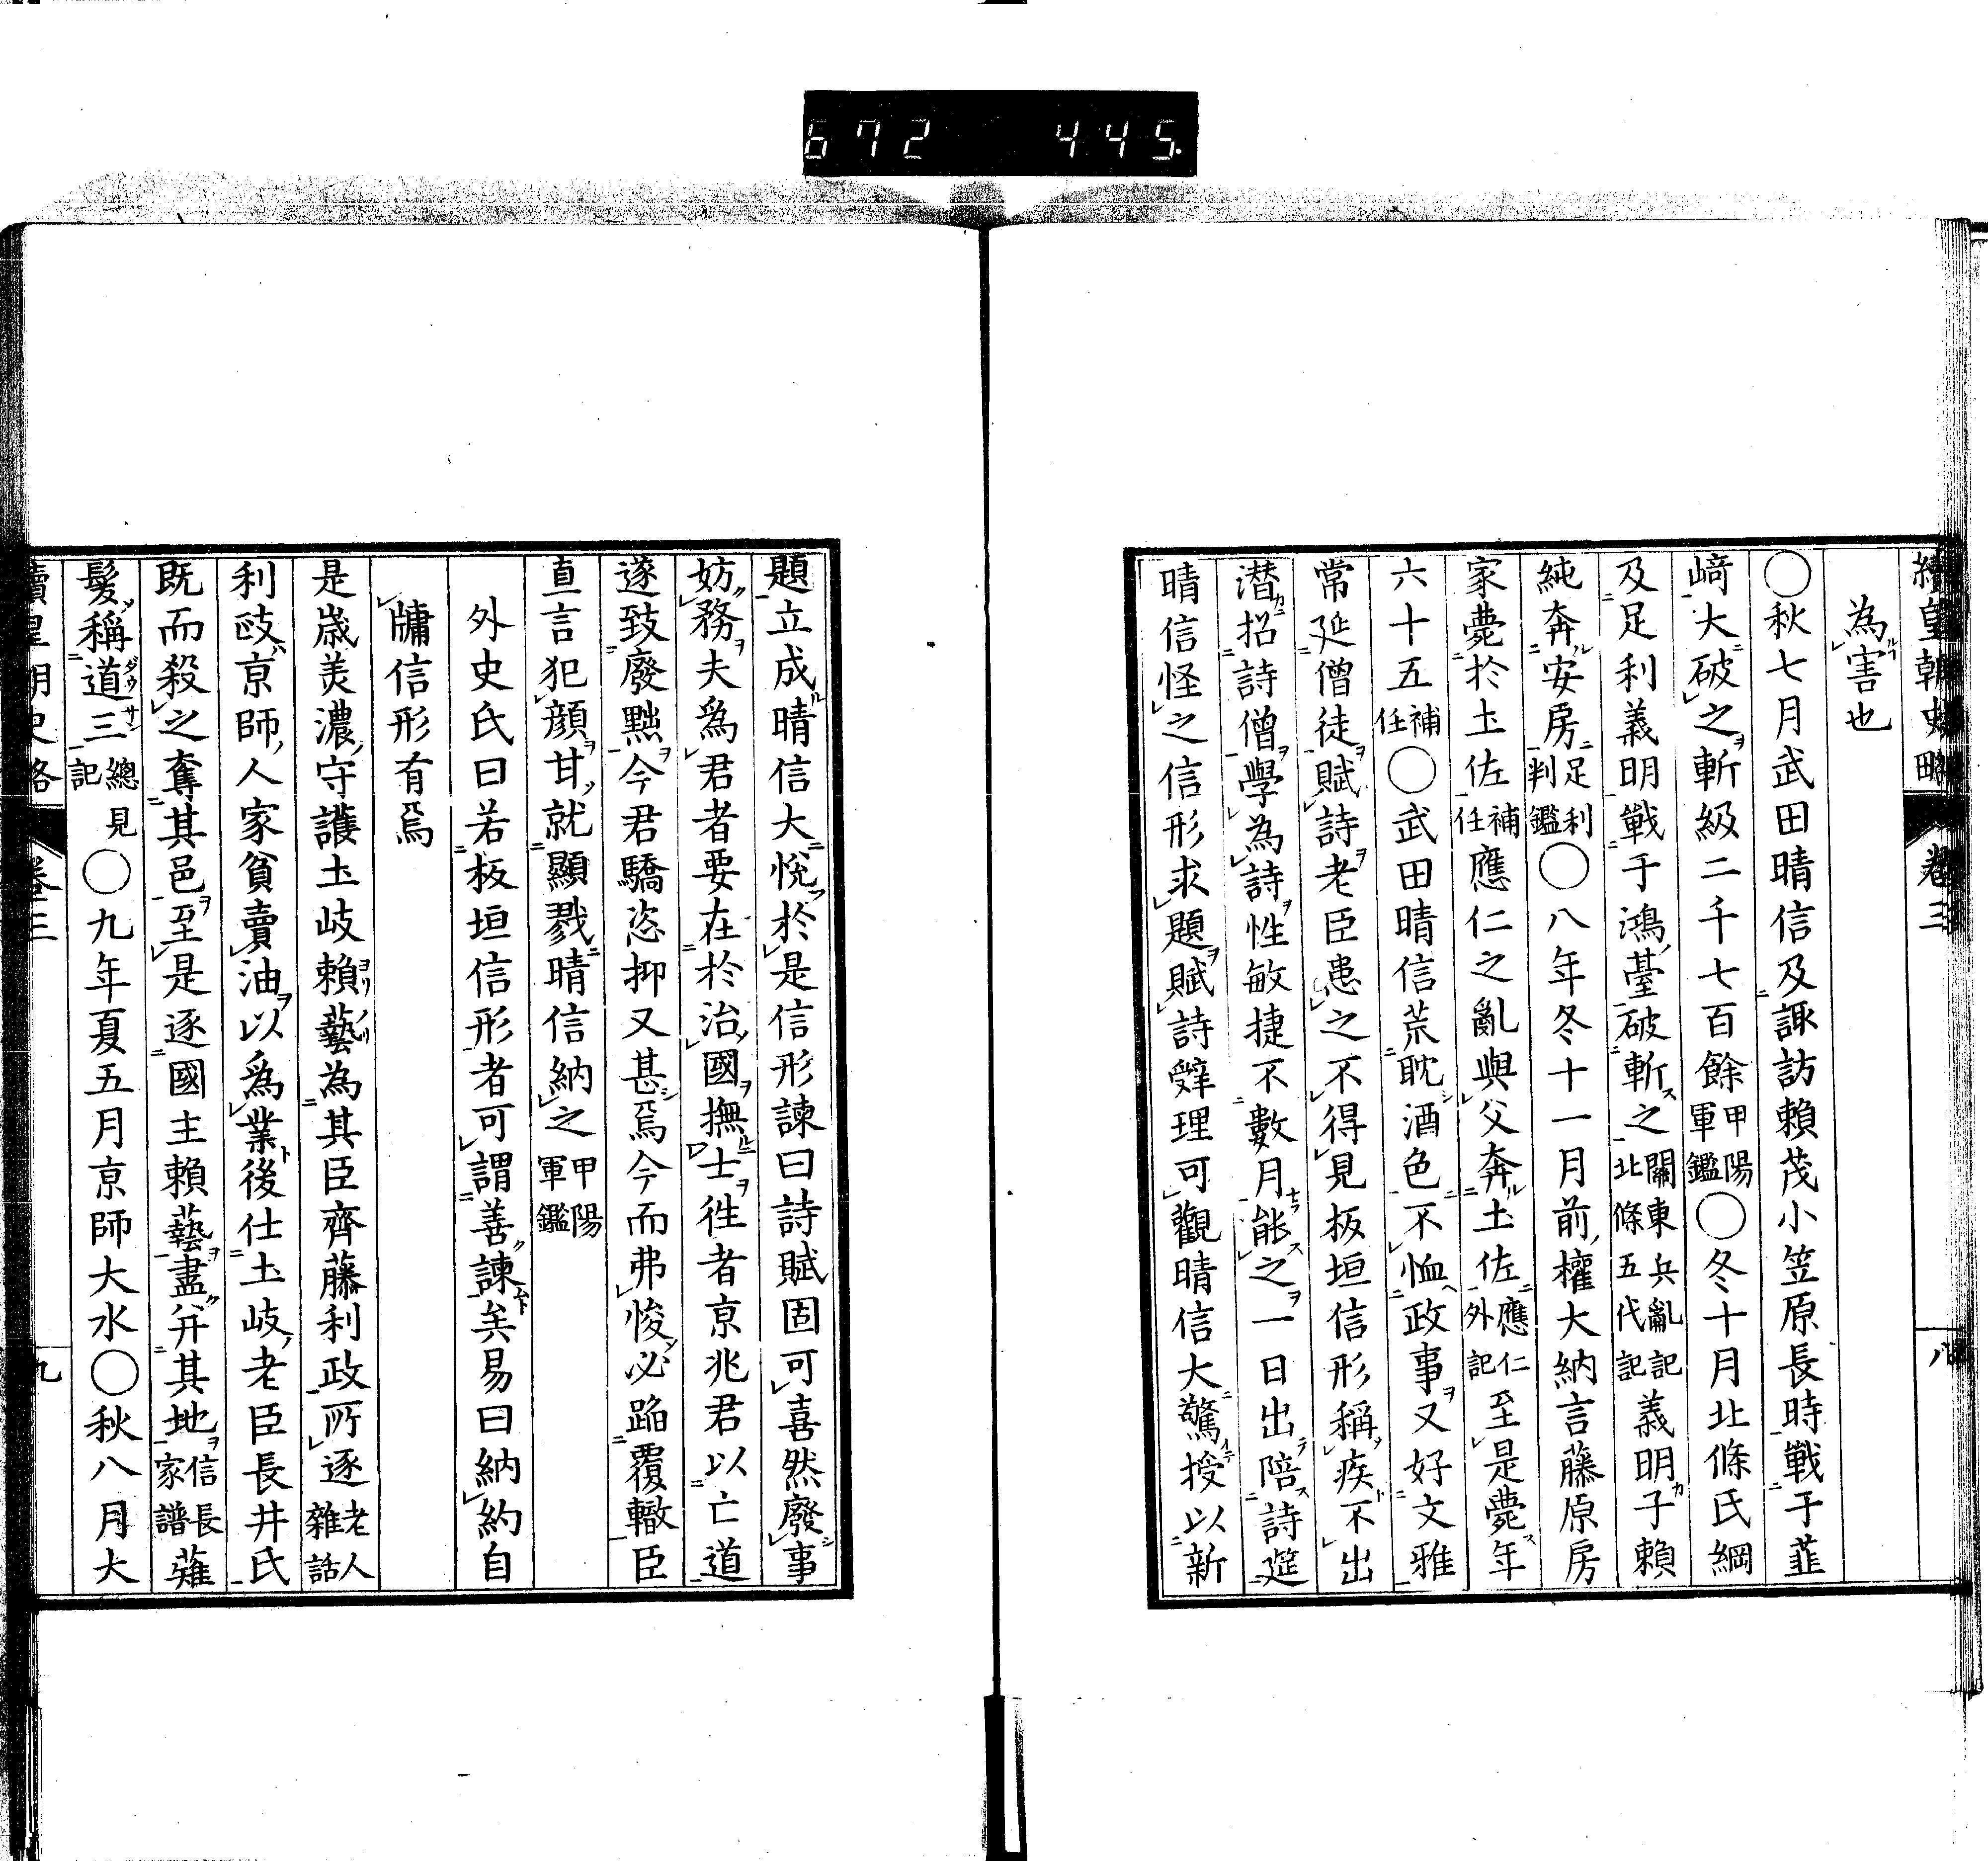 672 445.
續皇朝史略 卷三 八
為害也
〇秋七月武田晴信及諏訪賴茂小笠原長時戰于韮
﨑大破之斬級二千七百餘甲陽軍鑑〇冬十月北條氏綱
及足利義明戰于鴻臺破斬之關東兵亂記北條五代記義明子賴
純奔安房足利判鑑〇八年冬十一月前權大納言藤原房
家薨於土佐補任應仁之亂與父奔土佐應仁外記至是薨年
六十五補任〇武田晴信荒耽酒色不恤政事又好文雅
常延僧徒賦詩老臣患之不得見板垣信形稱疾不出
潛招詩僧學為詩性敏捷不數月能之一日出陪詩筵
晴信怪之信形求題賦詩辭理可觀晴信大驚授以新
題立成晴信大悅於是信形諫曰詩賦固可喜然廢事
妨務夫爲君者要在於治國撫士徃者京兆君以亡道
遂致廢黜今君驕恣抑又甚焉今而弗悛必蹈覆轍臣
直言犯顔甘就顯戮晴信納之甲陽軍鑑
外史氏曰若板垣信形者可謂善諫矣易曰納約自
牖信形有焉
是歲美濃守護土岐賴藝為其臣齊藤利政所逐老人雜話
利政京師人家貧賣油以爲業後仕土岐老臣長井氏
既而殺之奪其邑至是逐國主賴藝盡并其地信長家譜薙
髮稱道三總見記〇九年夏五月京師大水〇秋八月大
續皇朝史略 卷三 九